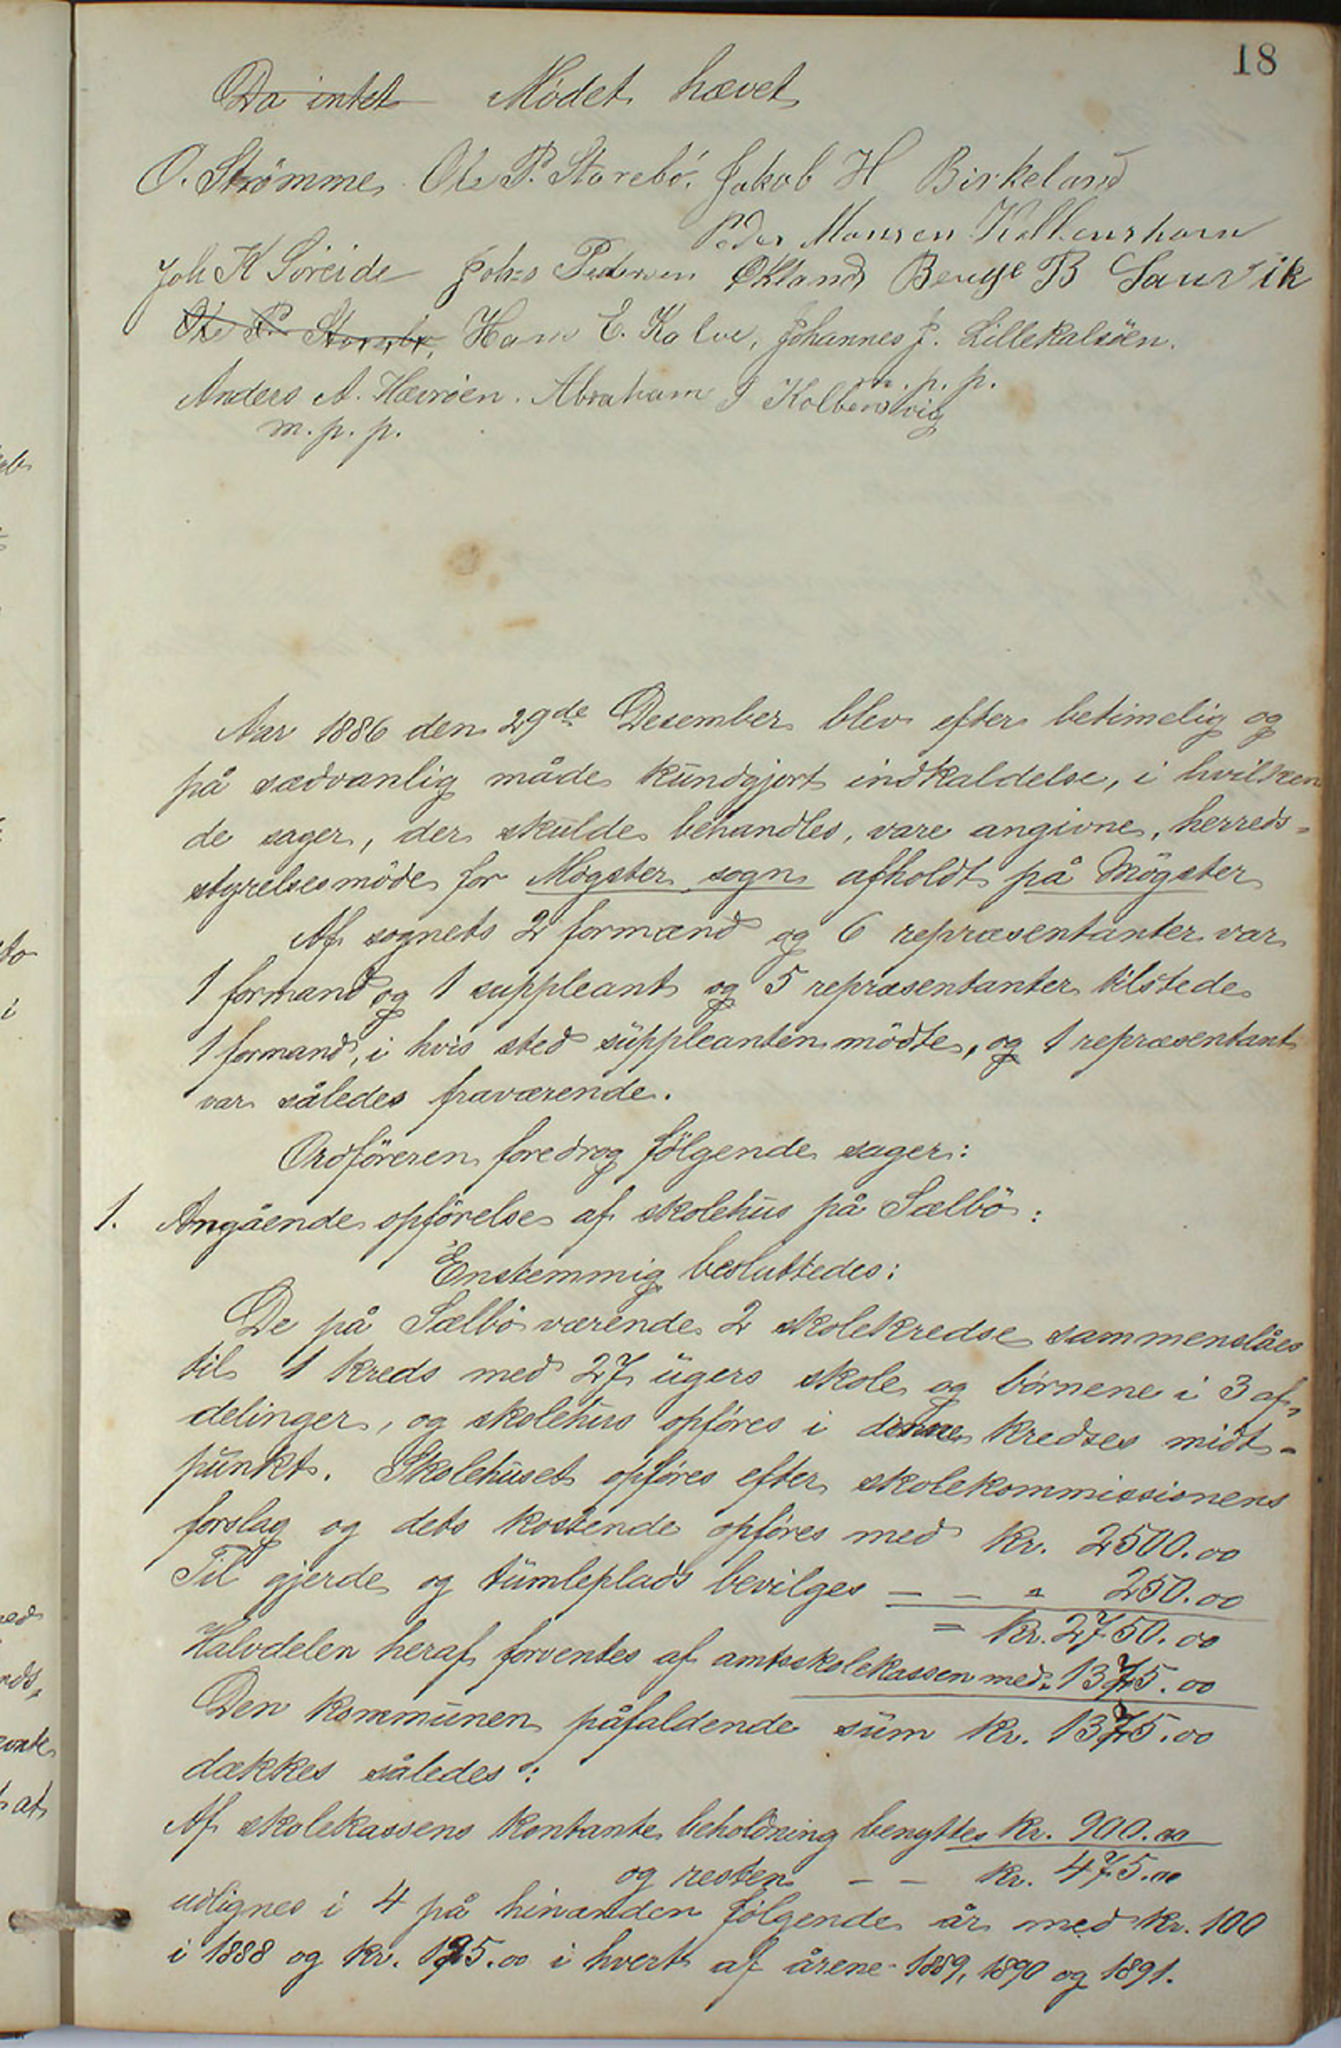 18
Da intet Mödet hævet
O. Strömme Ole P. Storebö. Jakob H Birkeland
Peder Monsen Kolbenshavn
Joh K Söreide Johs Pedersen Økland Benge B Laurvik
Ole P. Storebö, Hans E. Kalve, Johannes J. Lillekalsöen.
m. p. p.
Anders A. Hævröen. Abraham J Kolbensvig
m. p. p.
Aar 1886 den 29de Desember blev efter betimelig og
på sædvanlig måde kundgjort indkaldelse, i hvilken
de sager, der skulde behandles, vare angivne, herreds-
styrelsesmöde for Mögster sogn afholdt på Mögster
Af sognets 2 formænd og 6 repræsentanter var
1 formand og 1 suppleant og 5 repræsentanter tilstede
1 formand, i hvis sted suppleanten mödte, og 1 repræsentant
var således fraværende.
Ordföreren foredrog fölgende sager:
1. Angående opförelse af skolehus på Sælbö:
Enstemmig besluttedes:
De på Sælbö værende 2 skolekredse sammenslåes
til 1 kreds med 27 ugers skole og börnene i 3 af-
delinger, og skolehus opföres i denne kredses midt-
punkt. Skolehuset opföres efter skolekommissionens
forslag og dets kostende opföres med kr. 2500.00
Til gjerde og tumleplads bevilges — — " 250.00
= kr. 2750.00
Halvdelen heraf forventes af amtsskolekassen med " 1375.00
Den kommunen påfaldende sum kr. 1375.00
dækkes således:
Af skolekassens kontante beholdning benyttes kr. 900.00
og resten — — kr. 475.00
udlignes i 4 på hinanden fölgende år med kr. 100
i 1888 og kr. 125.00 i hvert af årene 1889, 1890 og 1891.